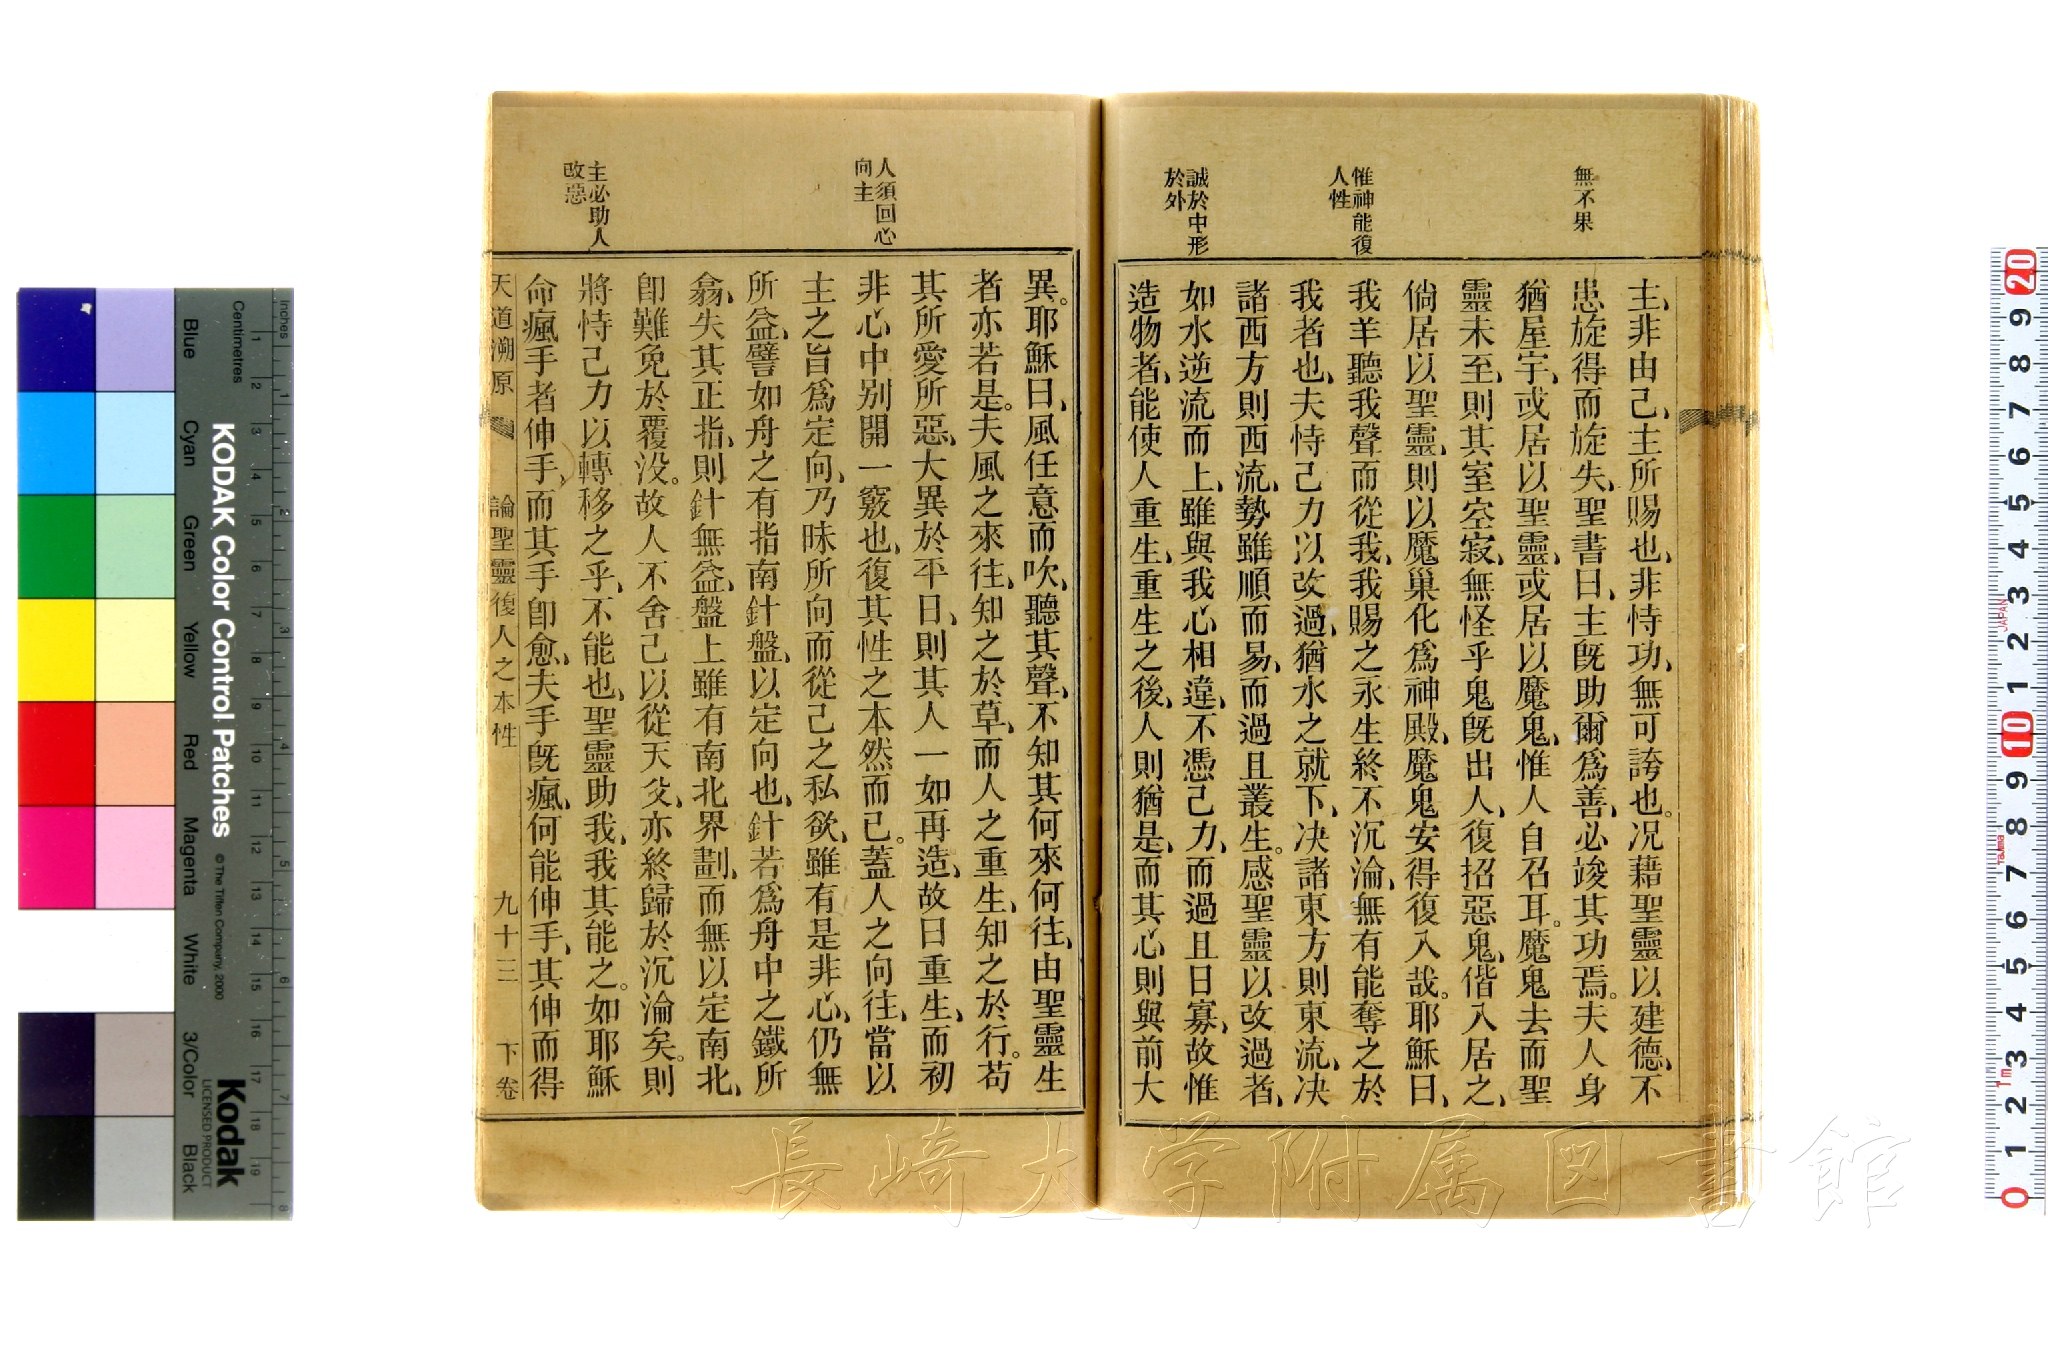 無不果
惟神能復
人性
誠於中形
於外
主、非由己、主所賜也、非恃功、無可誇也。況藉聖靈以建德、不
患旋得而旋失、聖書曰、主旣助爾爲善、必竣其功焉。夫人身
猶屋宇、或居以聖靈、或居以魔鬼、惟人自召耳。魔鬼去而聖
靈未至、則其室空寂、無怪乎鬼旣出人、復招惡鬼、偕入居之、
倘居以聖靈、則以魔巢化爲神殿、魔鬼安得復入哉。耶穌曰、
我羊聽我聲而從我、我賜之永生終不沉淪、無有能奪之於
我者也、夫恃己力以改過、猶水之就下、决諸東方則東流、决
諸西方則西流、勢雖順而易、而過且叢生。感聖靈以改過者、
如水逆流而上、雖與我心相違、不憑己力、而過且日寡、故惟
造物者、能使人重生、重生之後、人則猶是、而其心則與前大
人須回心
向主
主必助人
改惡
異。耶穌曰、風任意而吹、聽其聲、不知其何來何往、由聖靈生
者亦若是。夫風之來往、知之於草、而人之重生、知之於行。苟
其所愛所惡、大異於平日、則其人一如再造、故曰重生、而初
非心中别開一竅也、復其性之本然而已。蓋人之向往、當以
主之旨爲定向、乃昧所向而從己之私欲、雖有是非心、仍無
所益、譬如舟之有指南針盤、以定向也、針若爲舟中之鐵所
翕、失其正指、則針無益、盤上雖有南北界劃、而無以定南北、
卽難免於覆没。故人不舍己以從天父、亦終歸於沉淪矣。則
將恃己力以轉移之乎、不能也、聖靈助我、我其能之。如耶穌
命瘋手者伸手、而其手卽愈、夫手旣瘋、何能伸手、其伸而得
天道溯原 論聖靈復人之本性 九十三 下卷
KODAK Color Control Patches © The Tiffen Company, 2000
Kodak
LICENSED PRODUCT
Inches
Centimetres
Blue Cyan Green Yellow Red Magenta White 3/Color Black
長崎大学附属図書館